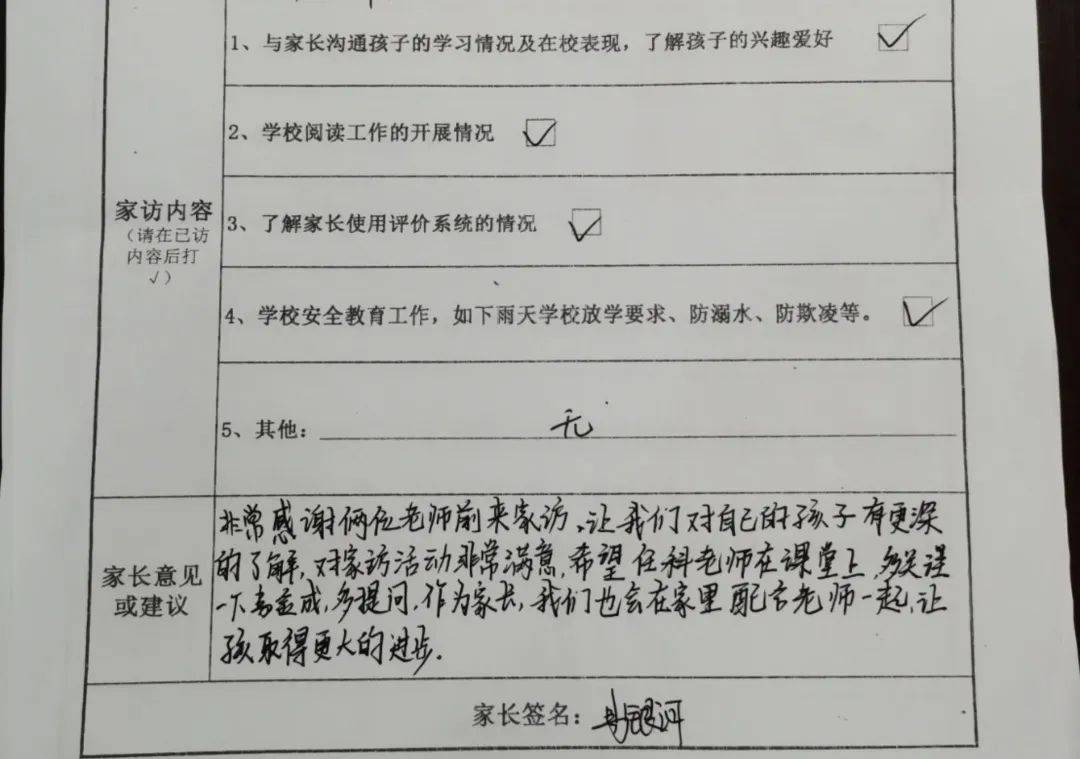 1、与家长沟通孩子的学习情况及在校表现，了解孩子的兴趣爱好 ☑
2、学校阅读工作的开展情况 ☑
家访内容
（请在已访
内容后打
√）
3、了解家长使用评价系统的情况 ☑
4、学校安全教育工作，如下雨天学校放学要求、防溺水、防欺凌等。 ☑
5、其他：无
家长意见
或建议
非常感谢俩位老师前来家访、让我们对自己的孩子有更深
的了解，对家访活动非常满意，希望任科老师在课堂上，多关注
一下 成，多提问，作为家长，我们也会在家里配合老师一起，让
孩取得更大的进步.
家长签名： 银河